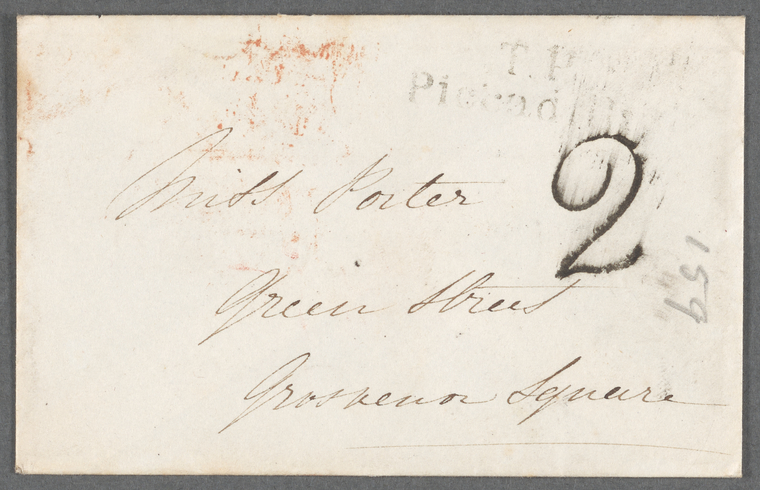 T.P
Piccadilly
2
Miss Porter
Green Street
Grosvenor Square
159